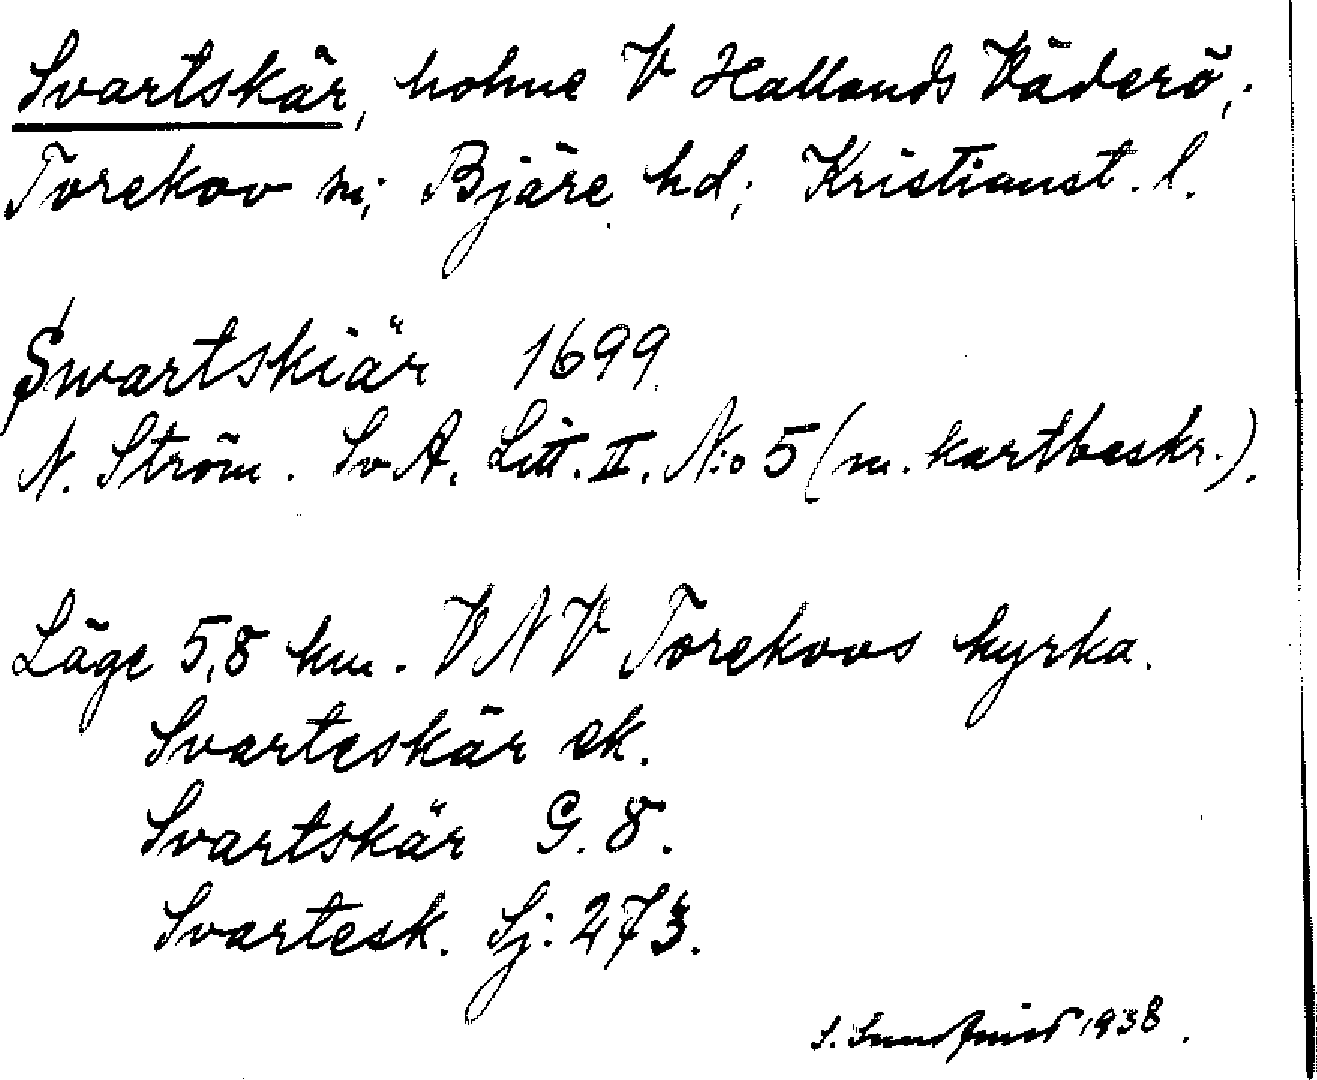 Svartskär, holme V Hallands Väderö,
Torekov sn; Bjäre hd; Kristianst. l.
Swartskiär 1699
N. Ström. SvA. Litt. II. N:o 5 (m. kartbeskr.).
Läge 5,8 km. VNV Torekovs kyrka.
Svarteskär ek.
Svartskär G. 8.
Svartesk. Sj: 273.
S. 1938.